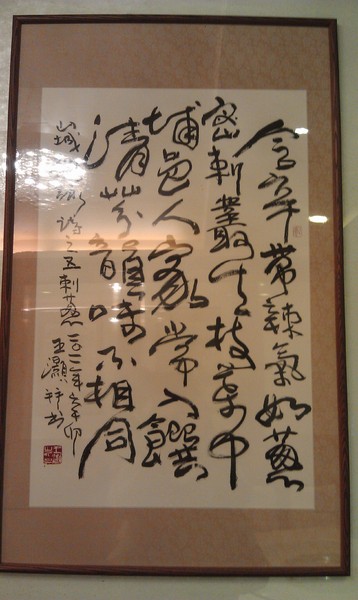 含辛帶辣氣如葱
密刺叢生枝葉中
埔邑人家常入饌
清芬韻味不相同
山城 詩之五刺葱 二〇一一年辛卯
王灝 書